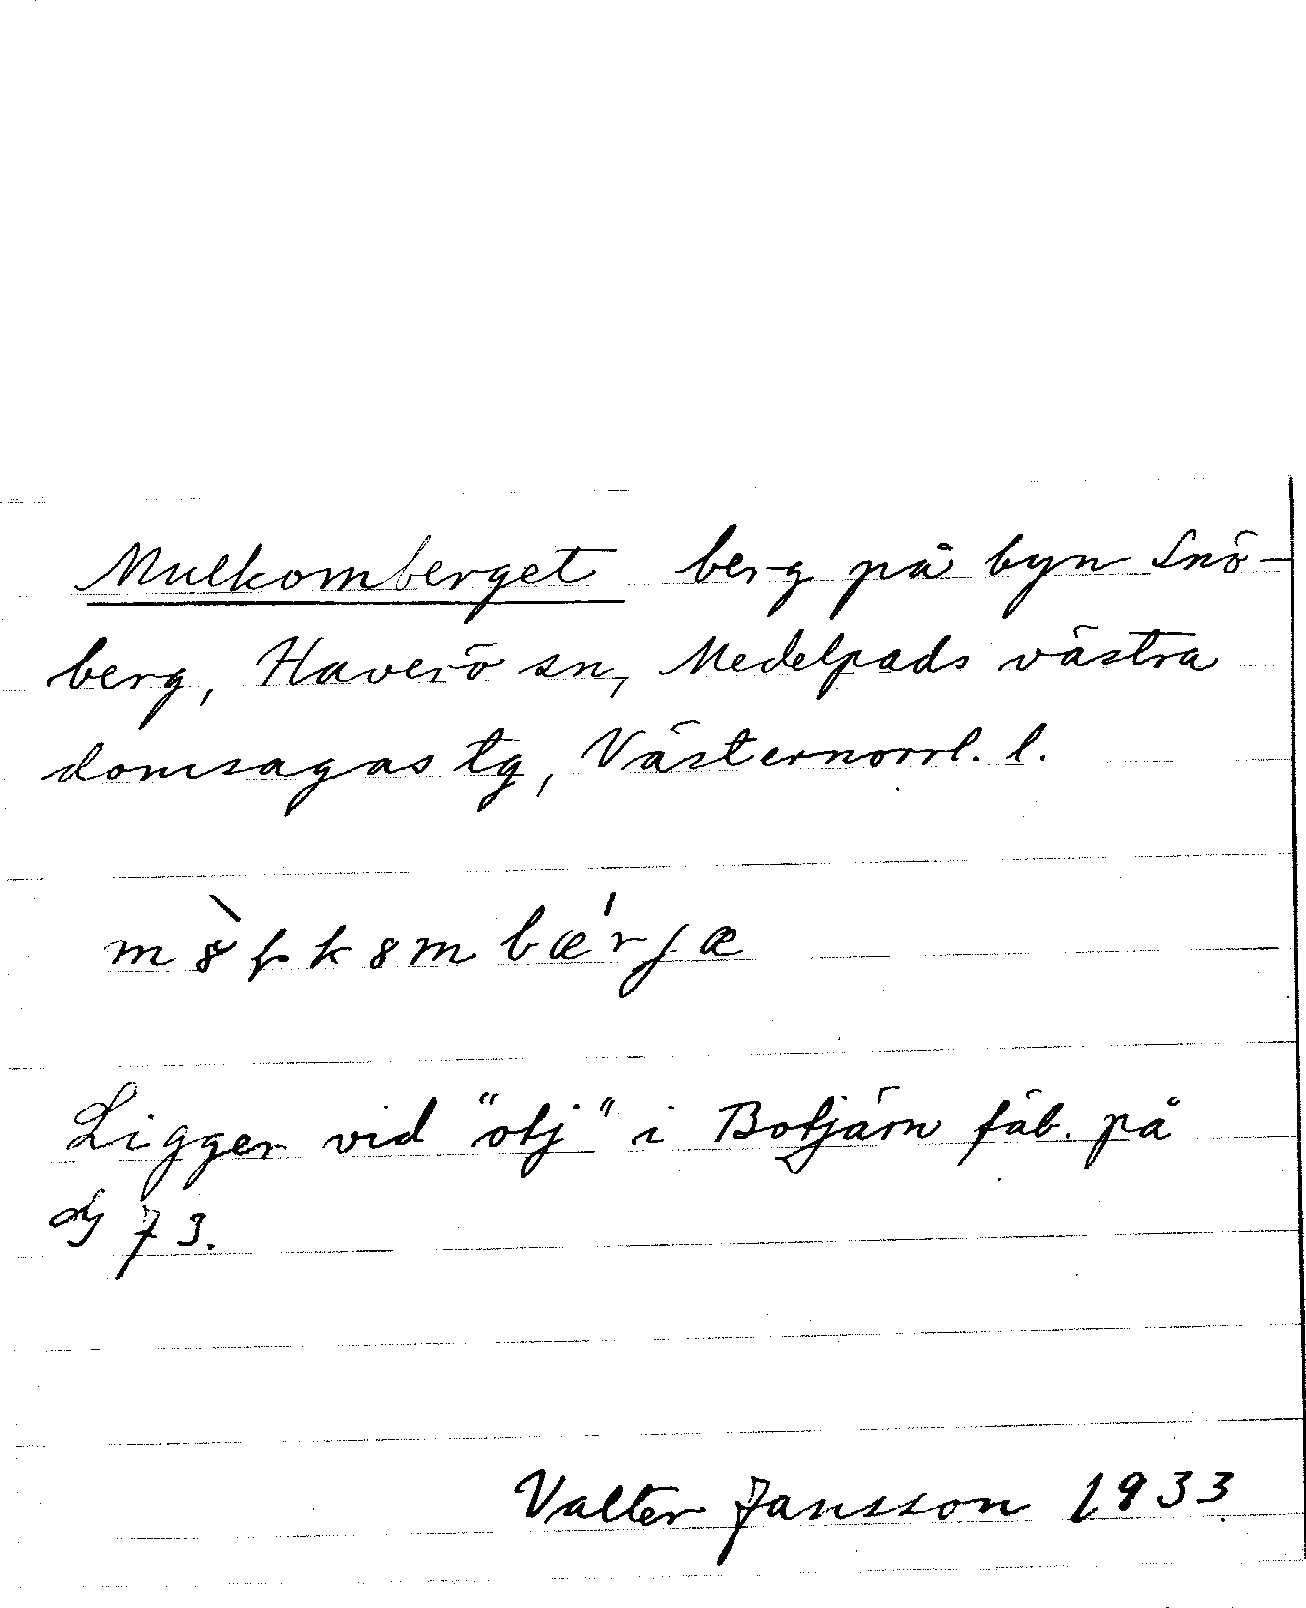 Mulkomberget berg på byn Snö-
berg, Haverö sn, Medelpads västra
domsagas tg, Västernorrl. l.
Ligger vid "otj" i Botjärn fäb. på
73.
Valter Jansson 1933.